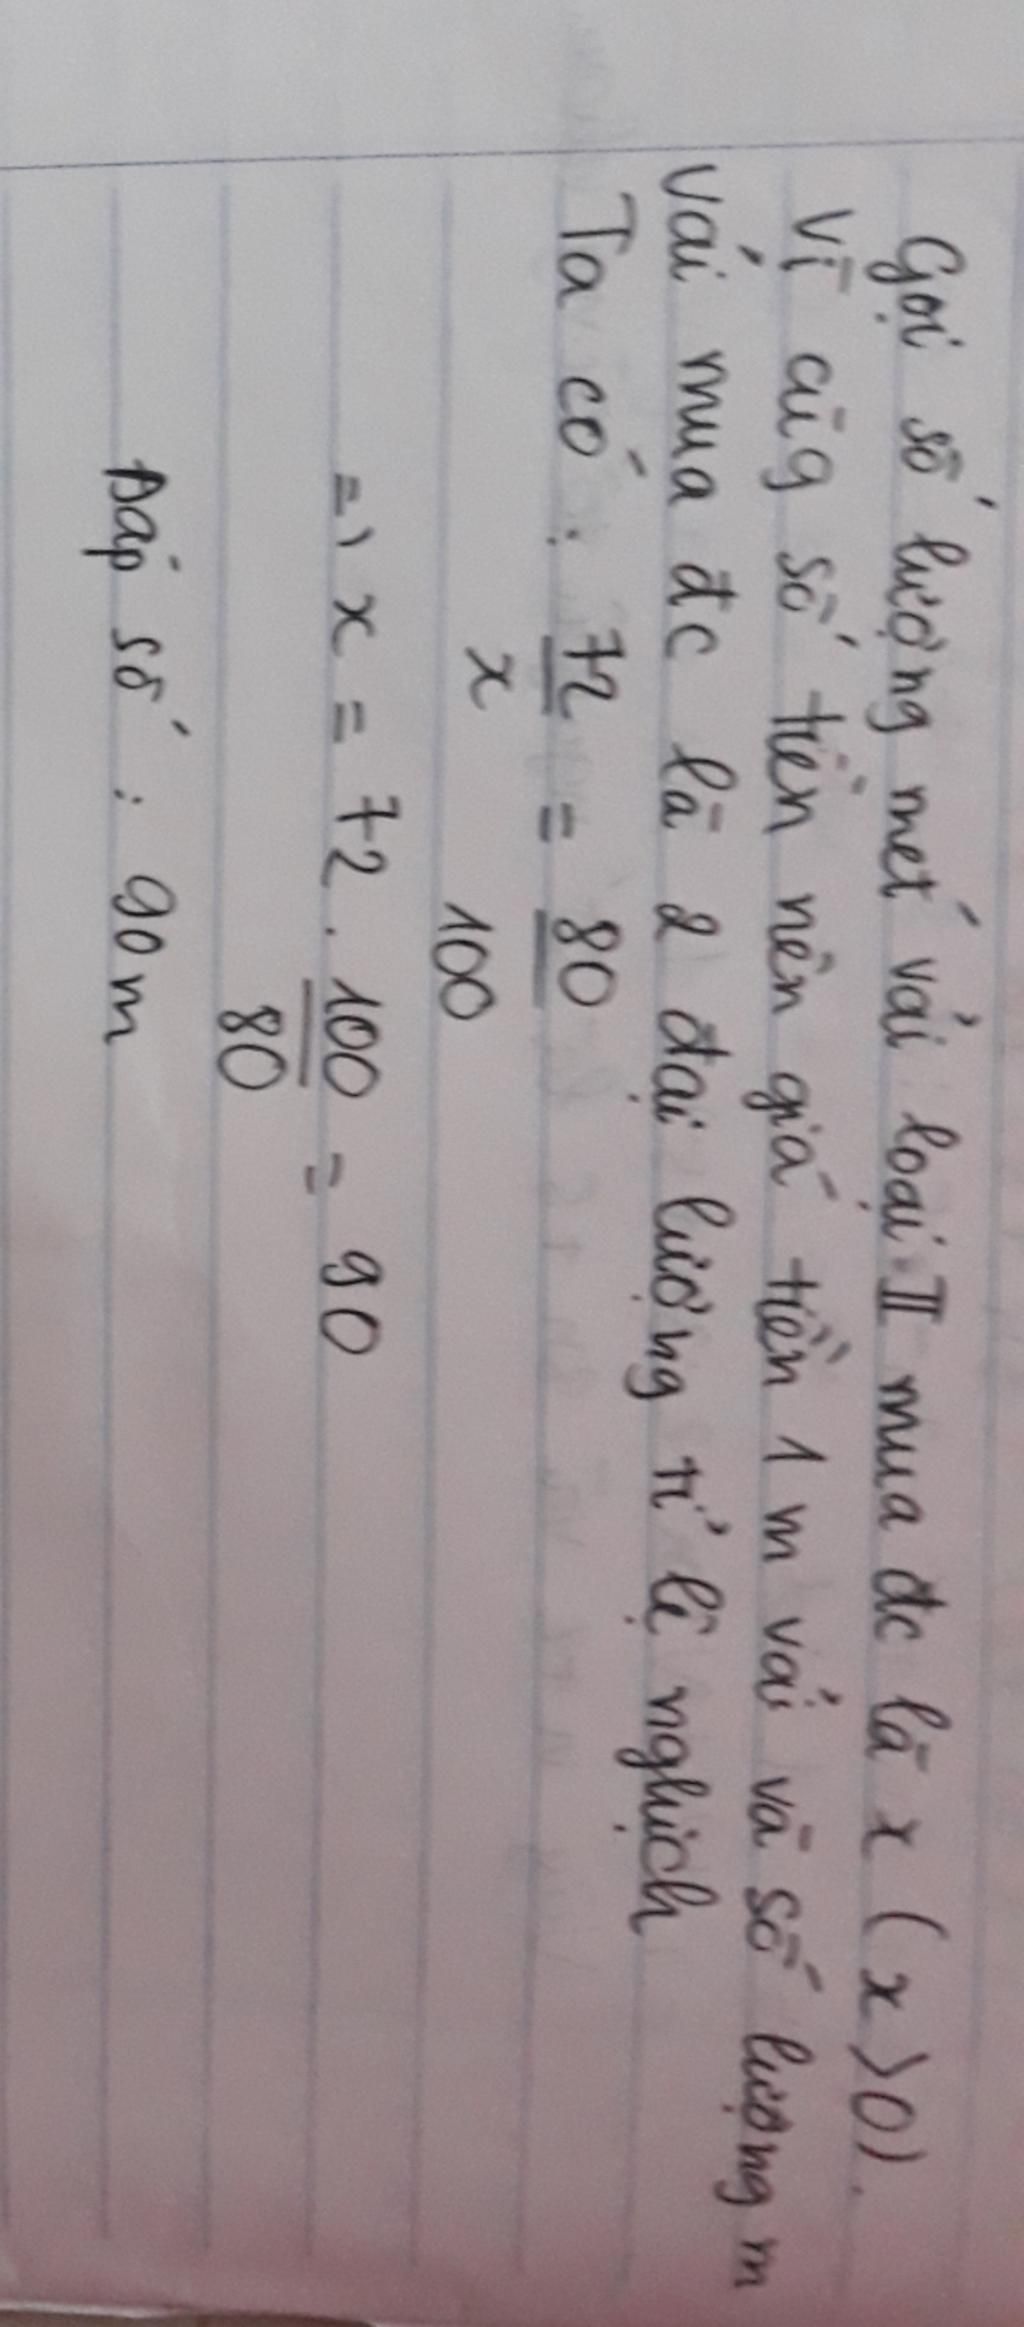 Gọi số lượng mét vải loại II mua đc là x (x > 0).
Vì cùg số tiền nên giá tiền 1 m vải và số lượng m
vải mua đc là 2 đại lượng tỉ lệ nghịch
Ta có : 72/x = 80/100
=> x = 72 . 100/80 = 90
Đáp số : 90 m